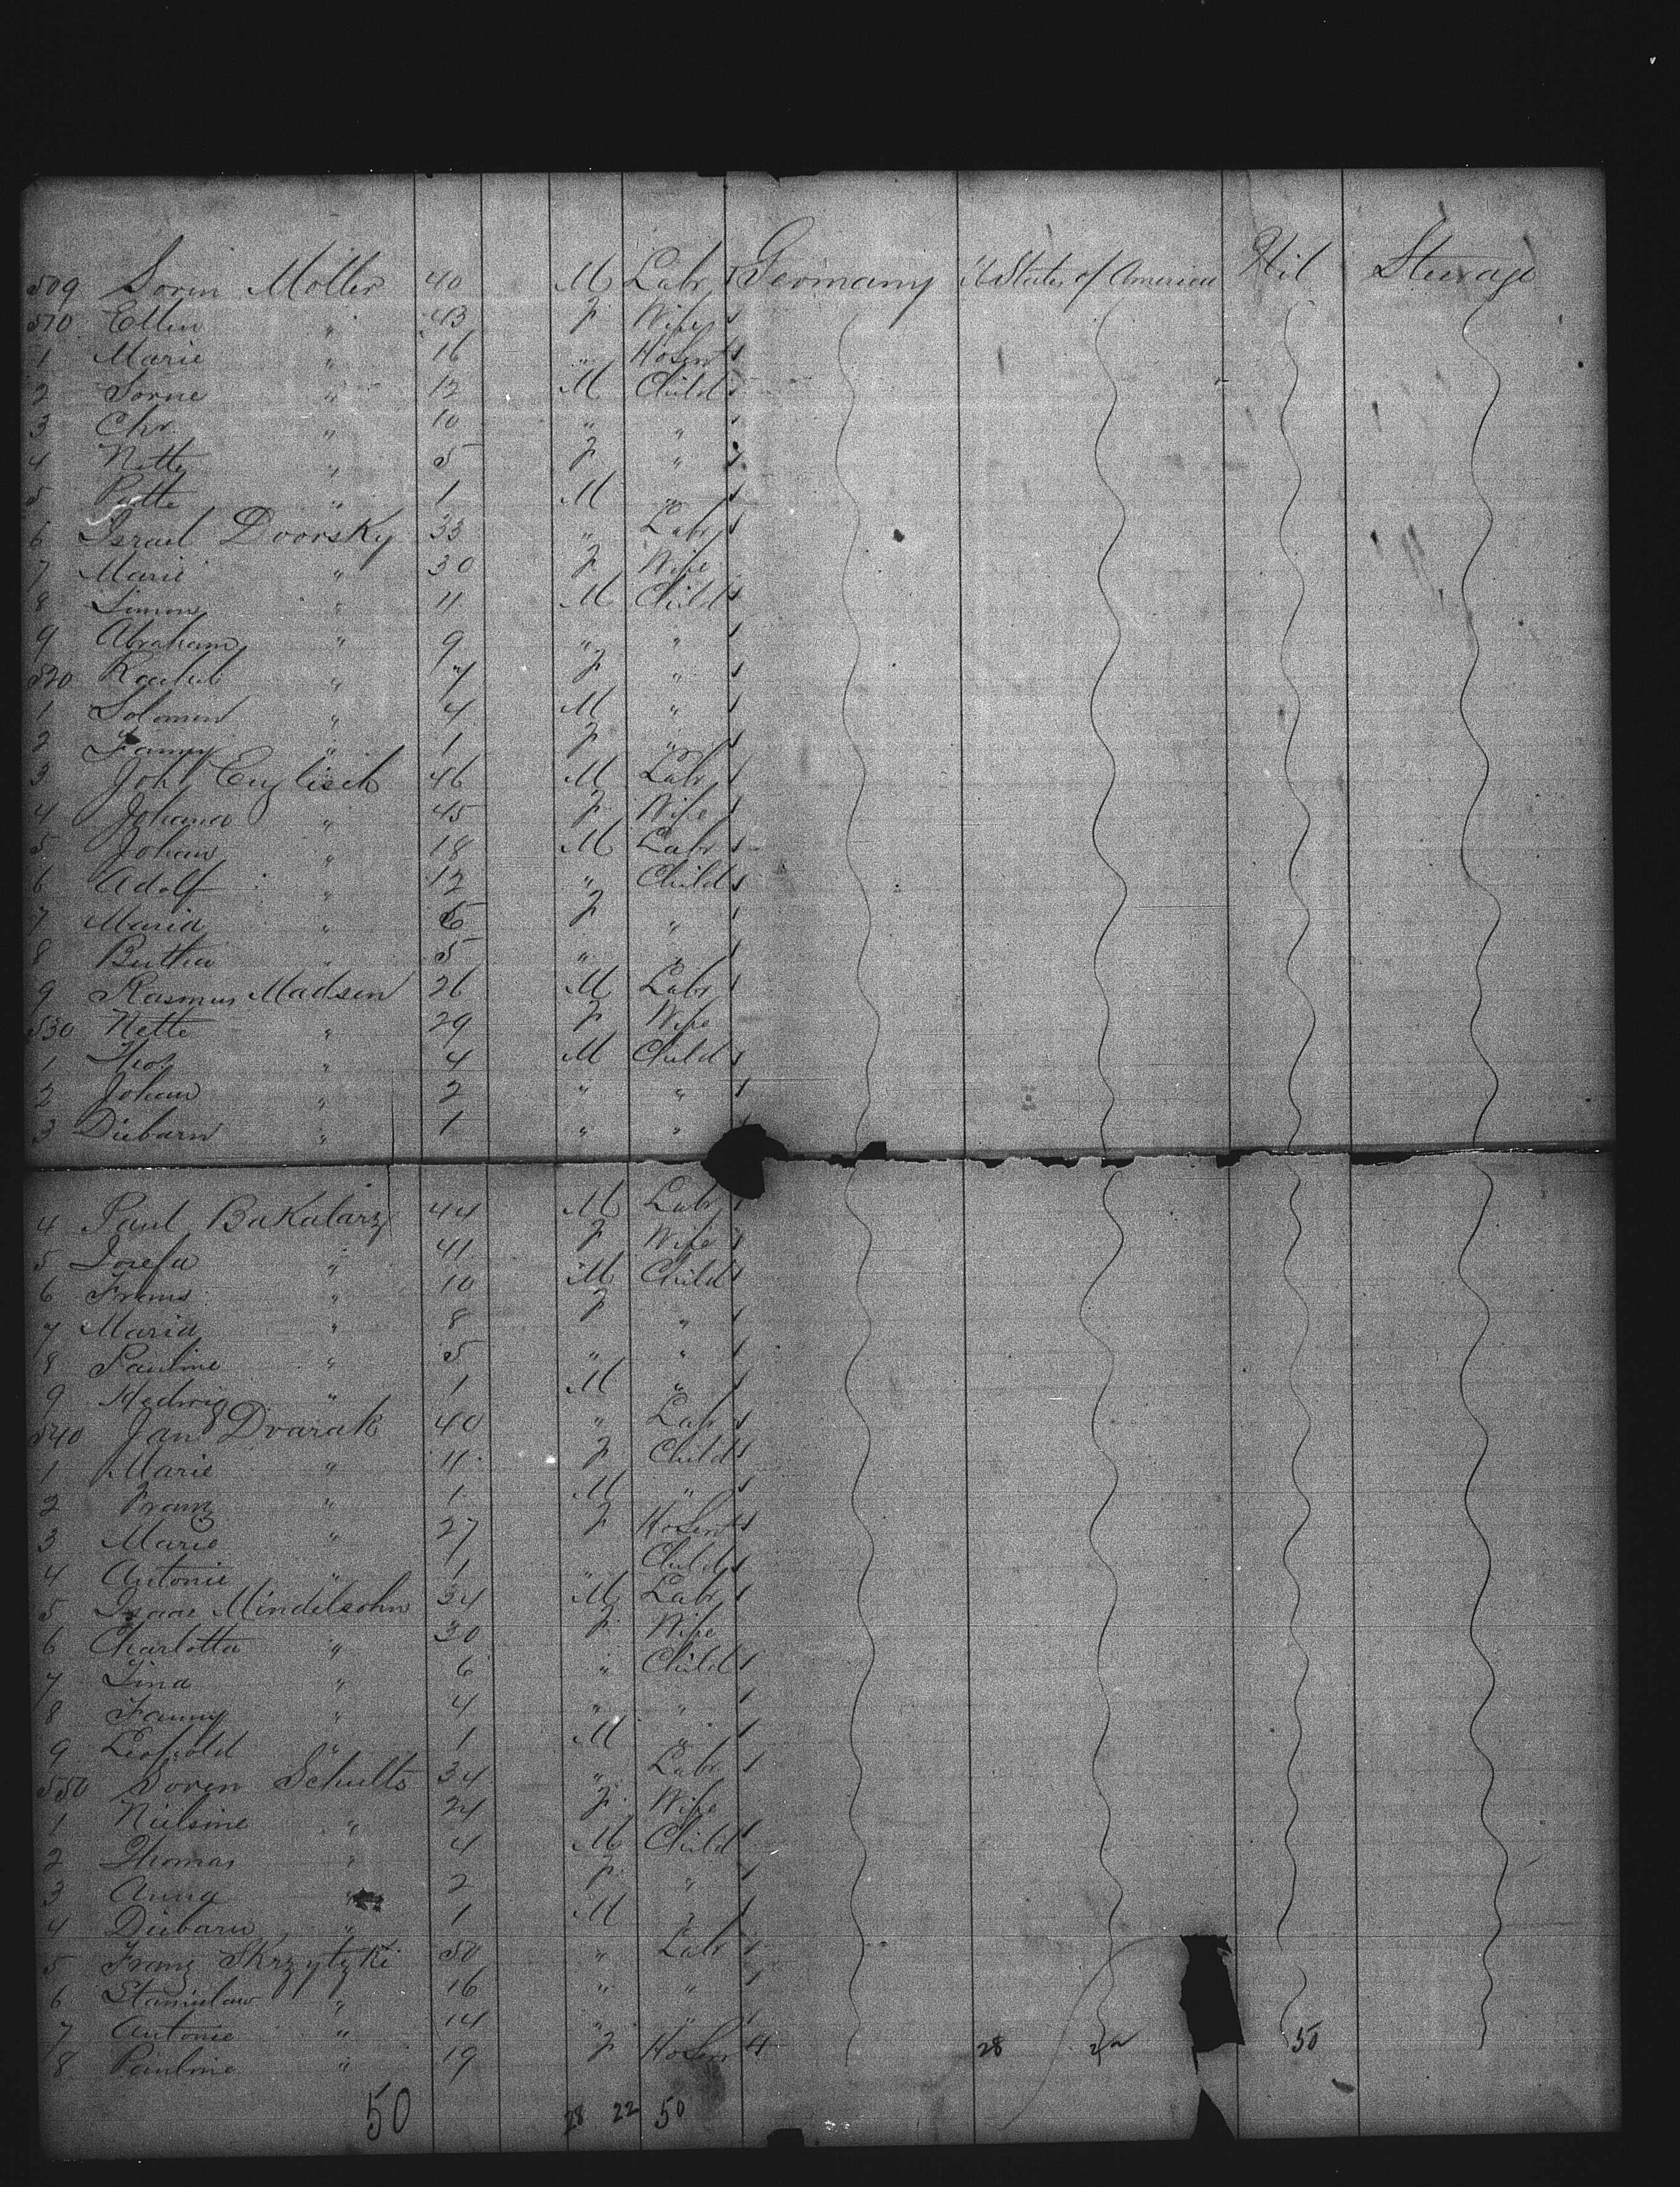 509 Soren Moller 40 M Labr Germany U States of America Nil Steerage
510 Ellen " 43 F Wife
1 Marie " 16 " HoServt
2 Sorne " 12 M Child
3 Chr. " 10 " "
4 Nette " 5 F "
5 Pette " 1 M "
6 Israel Dvorsky 33 " Labr
7 Marie " 30 F Wife
8 Simon " 11 M Child
9 Abraham " 9 " "
520 Rachel " 7 F "
1 Solomon " 4 M "
2 Fanny " 1 F "
3 Joh Englisch 46 M Labr
4 Johana " 45 F Wife
5 Johan " 18 M Labr
6 Adolf " 12 " Child
7 Maria " 6 F "
8 Bertha " 5 " "
9 Rasmus Madsen 26 M Labr
530 Nette " 29 F Wife
1 Thos " 4 M Child
2 Johan " 2 " "
3 Diebarn " 1 " "
4 Paul Bakalarz 44 M Labr
5 Josefa " 41 F Wife
6 Frans " 10 M Child
7 Maria " 8 F "
8 Pauline " 5 " "
9 Hedwig " 1 M "
540 Jan Dvarak 40 " Labr
1 Marie " 11 F Child
2 Franz " 1 M "
3 Marie " 27 F HoServt
4 Antonie " 1 " Child
5 Isaac Mindelsohn 34 M Labr
6 Charlotta " 30 F Wife
7 Lina " 6 " Child
8 Fanny " 4 " "
9 Leopold " 1 M "
550 Soren Schults 34 " Labr
1 Nielsine " 24 F Wife
2 Thomas " 4 M Child
3 Anna " 2 F "
4 Diebarn " 1 M "
5 Franz Skrzytzki 50 " Labr
6 Stanislaw " 16 " "
7 Antonie " 14 " "
8 Pauline " 19 F HoServ 28 22 50
50 28 22 50